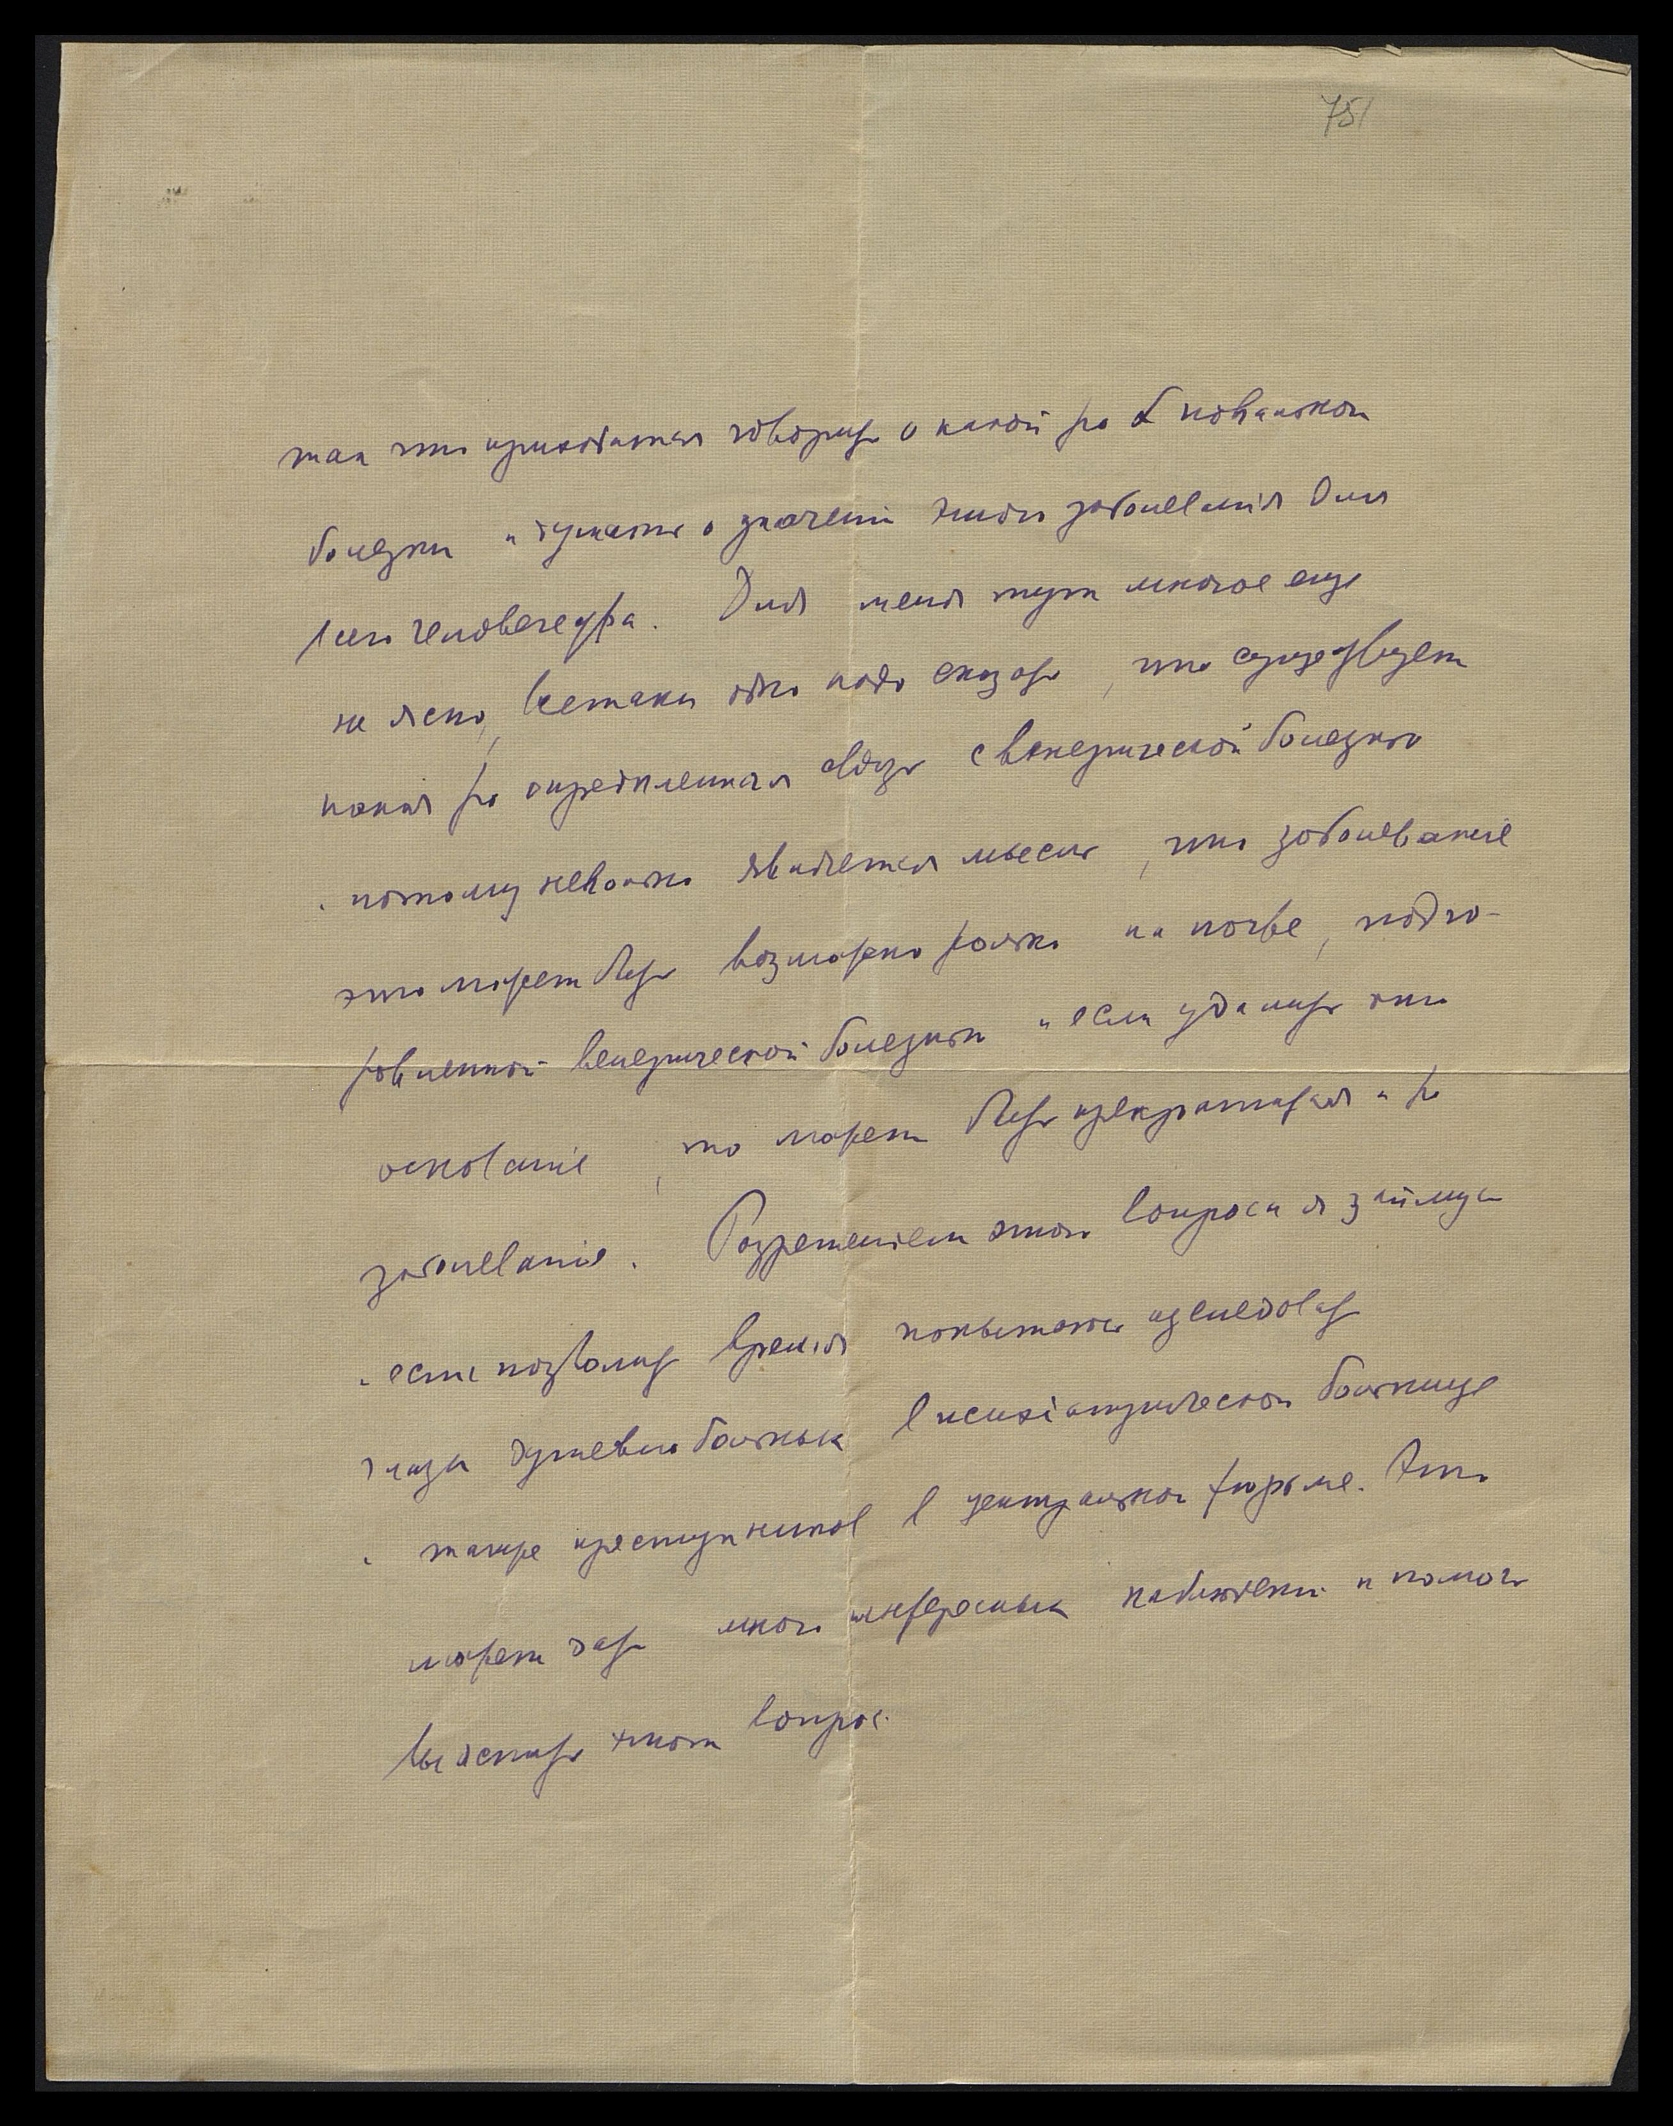 751
так что приходится говорить о какой то
болезни и думать о значении этого заболевания для
всего человечества. Для меня тут многое еще
не ясно, всетаки одно надо сказать, что существует
какая то определенная связь с венерической болезнью
и потому невольно является мысль, что заболеванiе
это может быть возможно только на почве, подго-
товленной венерической болезнью и если удалить это
основанiе, то может быть прекратится и то
заболеванiе. Разрешенiем этого вопроса я займусь
и если позволит время попытаюсь изследовать
глаза душевно больных в психiатрической больнице
и также преступников в центральной тюрьме. Это
может дать много интересных наблюдений и помочь
выяснить этот вопрос.